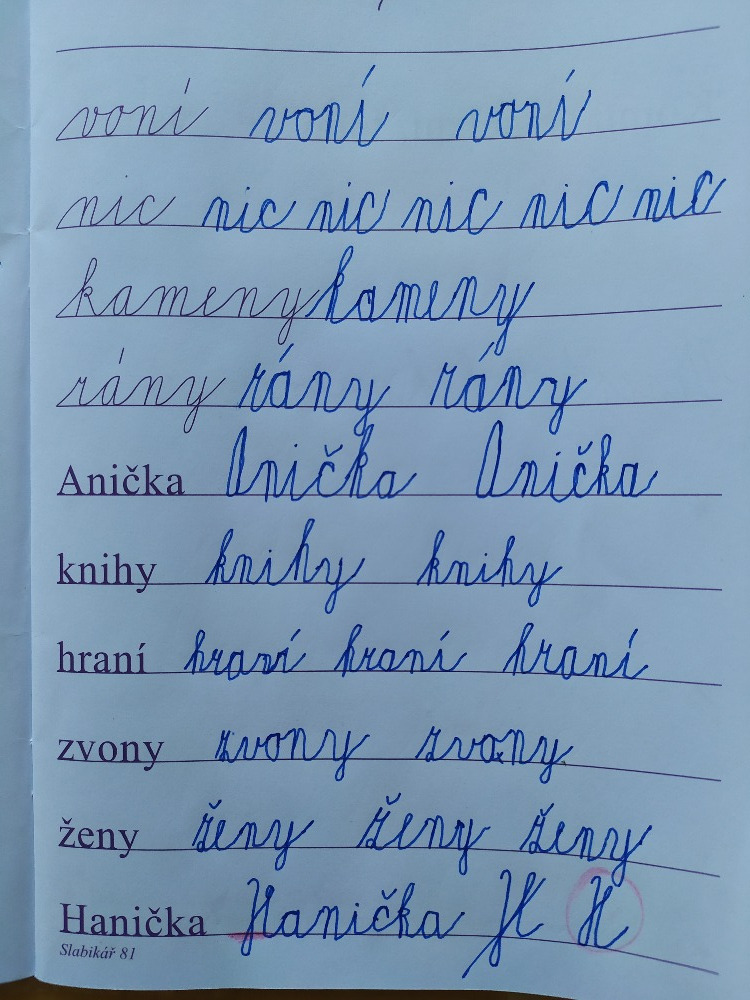 voní voní voní
nic nic nic nic nic nic
kameny kameny
rány rány rány
Anička Anička Anička
knihy knihy knihy
hraní hraní hraní hraní
zvony zvony zvony
ženy ženy ženy ženy
Hanička Hanička H H
Slabikář 81